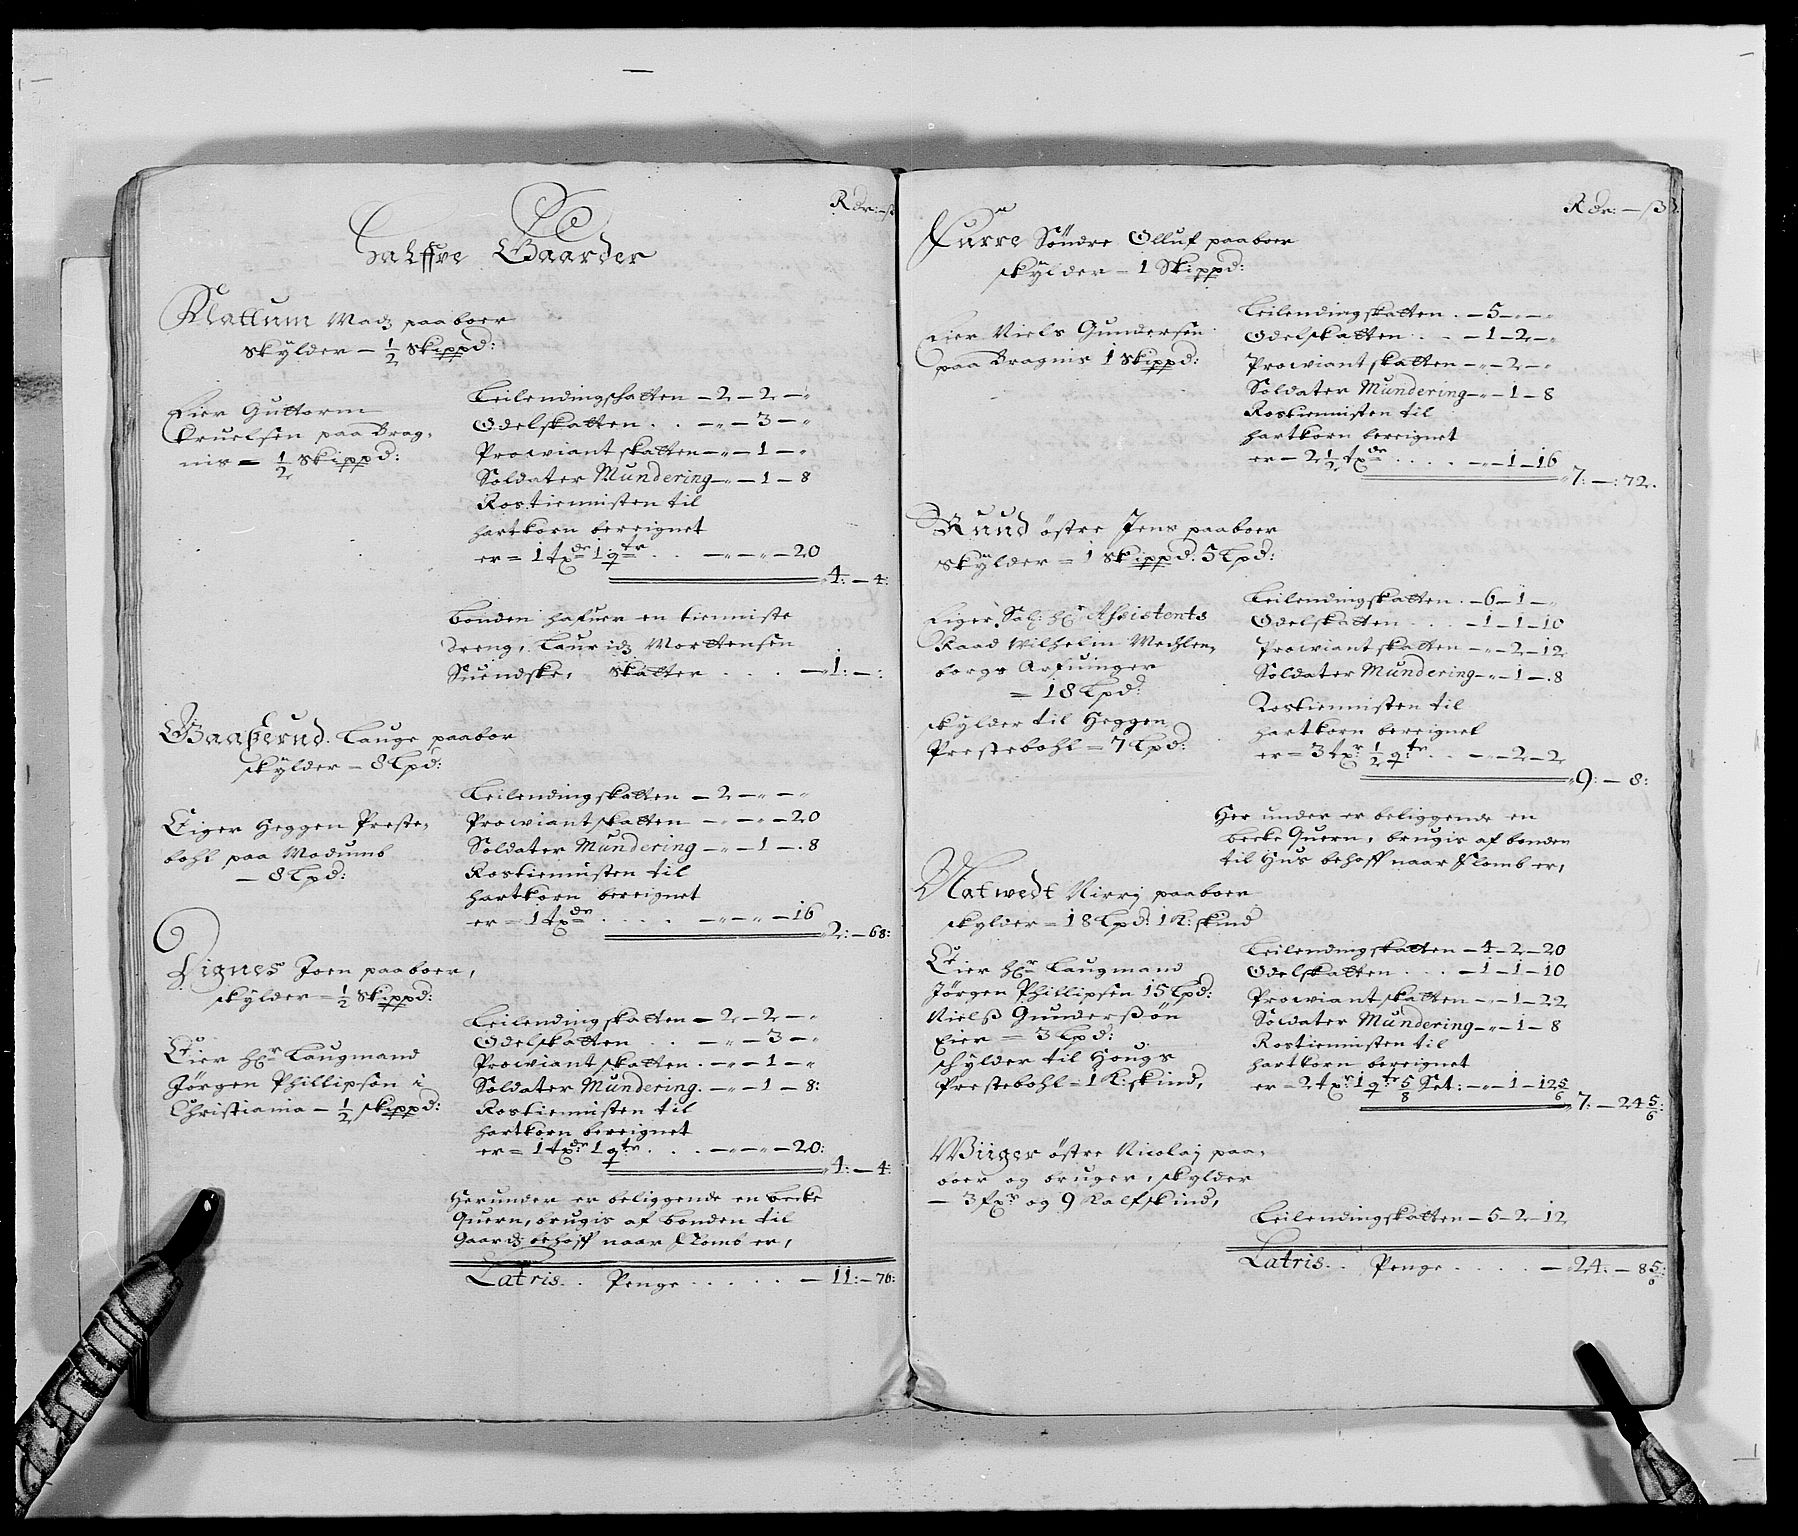 Rdr: — ß
Halffve Gaarder
Klattum Madz paaboer
skylder — 1/2 Skippd:
Eier Guttorm
Truelsen paa Brag-
nis — 1/2 Skippd:
Leilendingschatten — 2 — 2 — "
Odelskatten . . — " — 3 — "
Prowiantskatten — " — 1 — "
Soldater Mundering — " — 1 — 8
Rostiennisten til
hartkorn bereignet
er = 1 txdr 1 qtr . . — " — " — 20
4: — 4:
bonden hafuer en tienniste
dreng, Lauridz Mortensen
Suendske, skatter . . . — 1: — :
Gaaßerud. Lauge paaboer
skylder — 8 Lpd:
Eiger Heggen Preste-
bohl paa Modumb
— 8 Lpd:
Leilendingskatten — 2 — " — "
Prowiantskatten — " — " — 20
Soldater Mundering — " — 1 — 8
Rostiennisten til
hartkorn bereignet
er = 1 txdr . . . . — " — " — 16
2: — 68:
Lignes Joen paaboer,
skylder — 1/2 Skippd:
Eier Hr Laugmand
Jørgen Phillipsen i
Christiania — 1/2 skippd:
Leilendingskatten — 2 — 2 — "
Odelskatten . . — " — 3 — "
Prowiantskatten . — " — 1 — "
Soldater Mundering . — " — 1 — 8:
Rostiennisten til
hartkorn bereignet
er = 1 txdr 1 qtr . . . — " — " — 20:
4: — 4:
Herunder er beliggende en becke
Quern, brugis af bonden til
Gaardz behoff naar Flomb er,
Latris . . Penge . . . . . — 11: — 76:
Rdr: — ß
Furre Söndre Olluf paaboer
skylder — 1 Skippd:
Eier Niels Gundersen
paa Bragnis 1 Skippd:
Leilendingskatten . — 5 — " — "
Odelskatten . . — 1 — 2 — "
Prowiantskatten — " — 2 — "
Soldater Mundering — " — 1 — 8
Rostiennisten til
hartkorn bereignet
er — 2 1/2 txdr . . . . — " — 1 — 16
7: — : 72.
Ruud östre Jens paaboer
skylder = 1 Skippd. 5 Lpd:
Eiger Sal: Hr Assistents
Raad Wilhelm Mechlen-
borgs Arfuinger
= 18 Lpd:
skylder til Heggen
Prestebohl = 7 Lpd:
Leilendingskatten . — 6 — 1 — "
Odelskatten . . . — 1 — 1 — 10
Prowiantskatten — " — 2 — 12
Soldater Mundering — " — 1 — 8
Rostiennisten til
hartkorn bereignet
er = 3 txr 1/2 qtr . . — " — 2 — 2
9: — 8:
Her under er beliggende en
becke Quern, brugis af bonden
til Hus behoff naar Flomb er,
Natwedt Nirrj paaboer
skylder = 18 Lpd: 1 K: skind
Eier Hr Laugmand
Jørgen Phillipsen 15 Lpd:
Nielß Gunderßøn
Eier = 3 Lpd:
schylder til Hougs
Prestebohl = 1 K: skind,
Leilendingskatten — 4 — 2 — 20
Odelskatten . . . — 1 — 1 — 10
Prowiantskatten — " — 1 — 22
Soldater Mundering — " — 1 — 8
Rostiennisten til
hartkorn bereignet
er — 2 txr 1 qtr 5/8 Set: — " — 1 — 12 5/6
7: — 24 5/6:
Wiiger östre Nicolaj paa-
boer og bruger, skylder
— 3 fxr og 9 Kalfskind,
Leilendingskatten — 5 — 2 — 12
Latris . . Penge . . . . — 24: — 8 5/6: